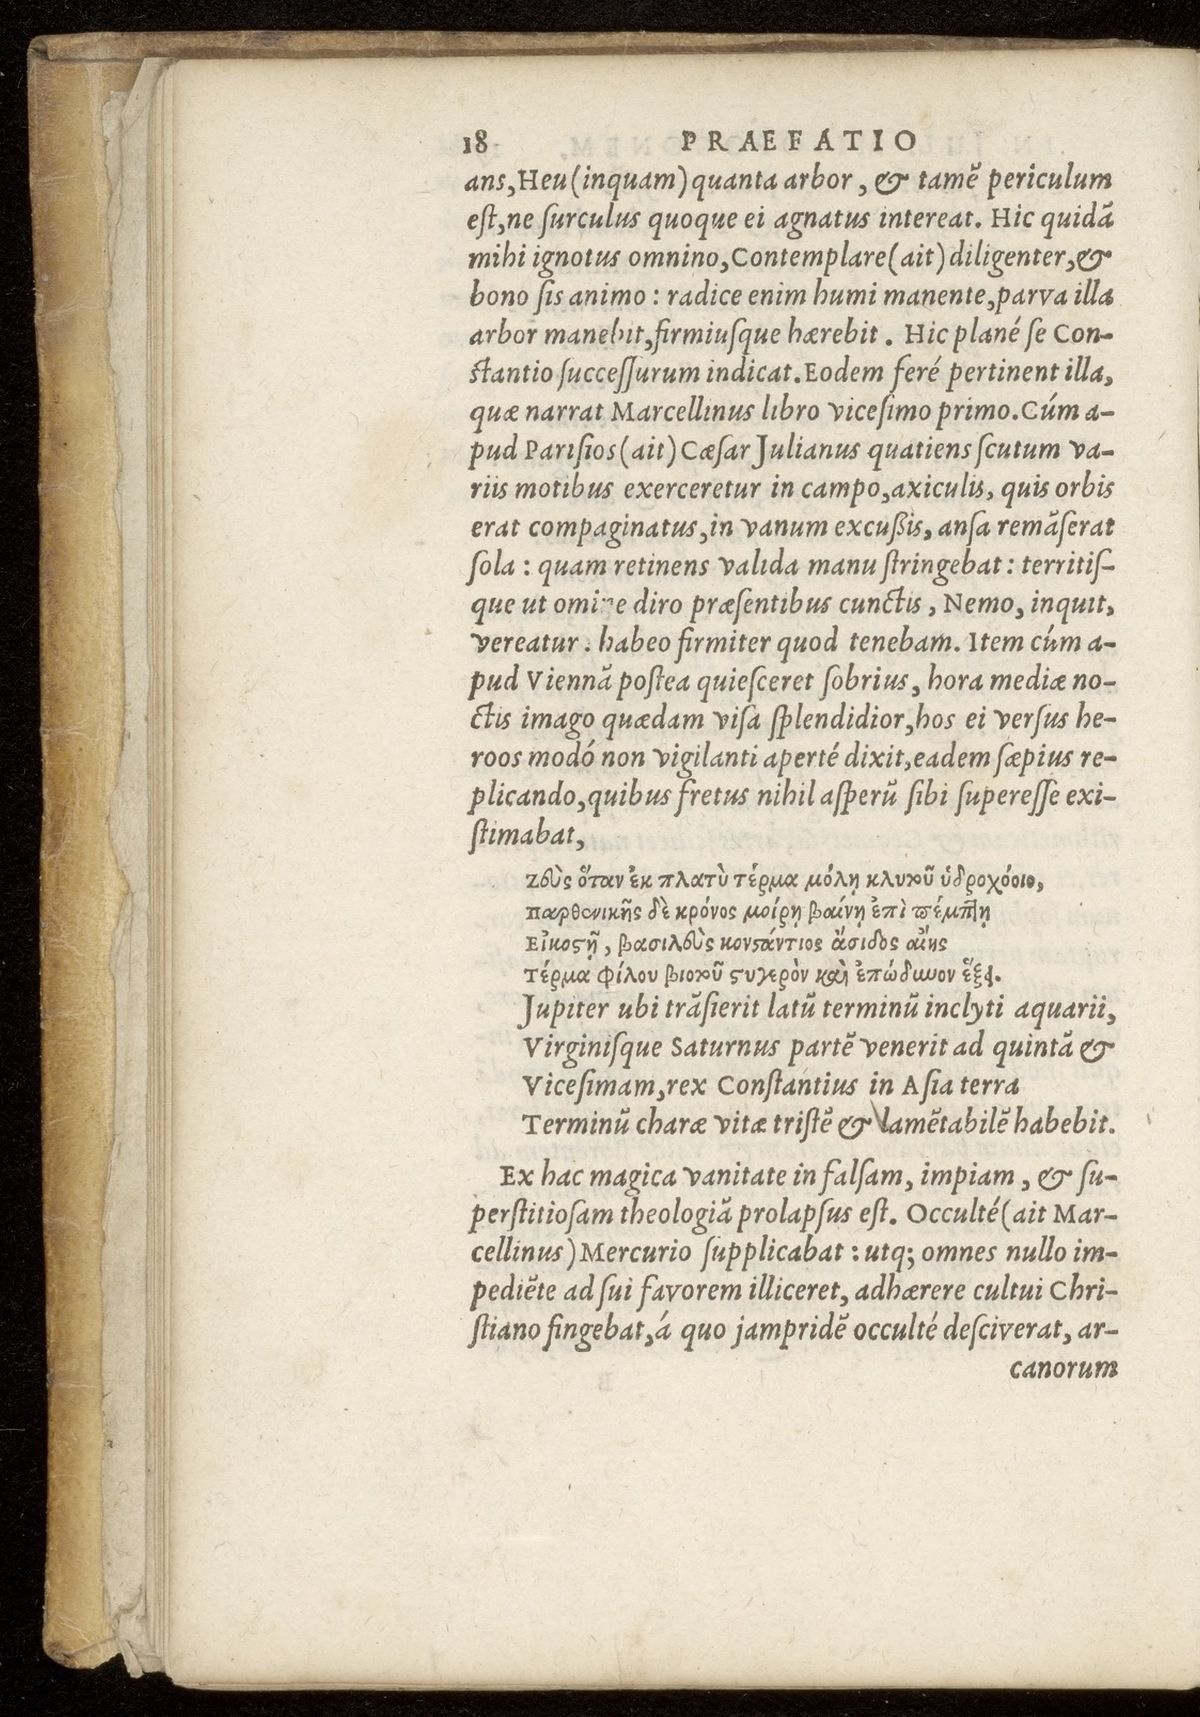 18 PRAEFATIO
ans, Heu (inquam) quanta arbor, & tamē periculum
eſt, ne ſurculus quoque ei agnatus intereat. Hic quidā
mihi ignotus omnino, Contemplare (ait) diligenter, &
bono ſis animo: radice enim humi manente, parva illa
arbor manebit, firmiuſque hærebit. Hic plané ſe Con-
ſtantio ſucceſſurum indicat. Eodem feré pertinent illa,
quæ narrat Marcellinus libro viceſimo primo. Cúm a-
pud Pariſios (ait) Cæſar Julianus quatiens ſcutum va-
riis motibus exerceretur in campo, axiculis, quis orbis
erat compaginatus, in vanum excuſsis, anſa remāſerat
ſola: quam retinens valida manu ſtringebat: territiſ-
que ut omine diro præſentibus cunctis, Nemo, inquit,
vereatur: habeo firmiter quod tenebam. Item cúm a-
pud Viennā poſtea quieſceret ſobrius, hora mediæ no-
ctis imago quædam viſa ſplendidior, hos ei verſus he-
roos modó non vigilanti aperté dixit, eadem ſæpius re-
plicando, quibus fretus nihil aſperū ſibi ſupereſſe exi-
ſtimabat,
Ζεὺς ὅταν ἐκ πλατὺ τέρμα μόλῃ κλυτοῦ ὑδροχόοιο,
παρθενικῆς δὲ κρόνος μοίρῃ βαίνῃ ἐπὶ πέμπτῃ
Εἰκοστῇ, βασιλεὺς κονστάντιος ἄσιδος αἴης
Τέρμα φίλου βιοτοῦ στυγερὸν καὶ ἐπώδυνον ἕξει.
Jupiter ubi trāſierit latū terminū inclyti aquarii,
Virginiſque Saturnus partē venerit ad quintā &
Viceſimam, rex Conſtantius in Aſia terra
Terminū charæ vitæ triſtē & lamētabilē habebit.
Ex hac magica vanitate in falſam, impiam, & ſu-
perſtitioſam theologiā prolapſus eſt. Occulté (ait Mar-
cellinus) Mercurio ſupplicabat: utq; omnes nullo im-
pediēte ad ſui favorem illiceret, adhærere cultui Chri-
ſtiano fingebat, á quo jampridē occulté deſciverat, ar-
canorum